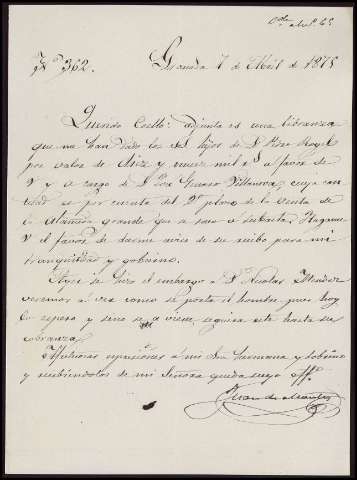 Nº 362.
Granada 7 de Abril de 1875
Querido Coello: adjunta es una libranza
que me han dado los Sres hijos de D.
por valor de diez y nueve mil rs a favor de
V y a cargo de D. Jose Genaro Villanova, cuya can-
tidad es por cuenta del 2º plazo de la Venta de
la Alameda grande que a saco a subasta. Hagame
V el favor de darme aviso de su recibo para mi
tranquilidad y gobierno.
Ayer se hizo el embargo a D. Nicolas Mendez
veremos a ver como se porta el hombre pues hoy
lo espero y sino se a viene, seguira este hasta su
cobranza.
Afectuosas espresiones á mi Sra hermana y sobrino
y recibiendolas de mi Señora queda suyo affº
Juan de